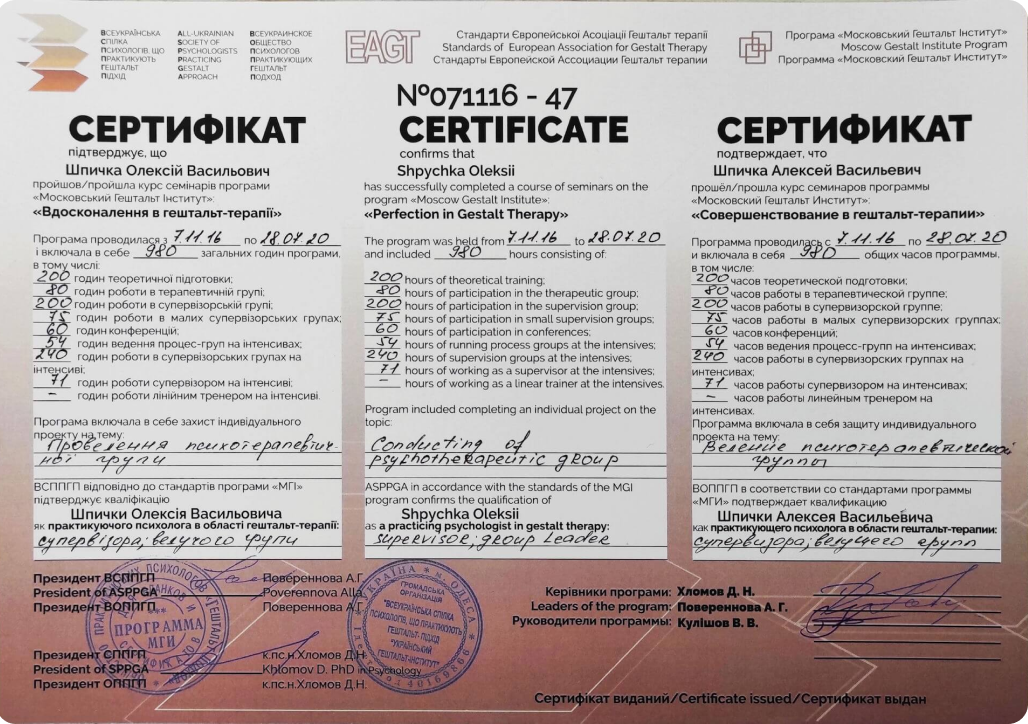 ВСЕУКРАЇНСЬКА
СПІЛКА
ПСИХОЛОГІВ, ЩО
ПРАКТИКУЮТЬ
ГЕШТАЛЬТ
ПІДХІД
ALL-UKRAINIAN
SOCIETY OF
PSYCHOLOGISTS
PRACTICING
GESTALT
APPROACH
ВСЕУКРАИНСКОЕ
ОБЩЕСТВО
ПСИХОЛОГОВ
ПРАКТИКУЮЩИХ
ГЕШТАЛЬТ
ПОДХОД
EAGT
Стандарти Європейської Асоціації Гештальт терапії
Standards of European Association for Gestalt Therapy
Стандарты Европейской Ассоциации Гештальт терапии
Програма «Московський Гештальт Інститут»
Moscow Gestalt Institute Program
Программа «Московский Гештальт Институт»
№071116 - 47
СЕРТИФІКАТ
підтверджує, що
Шпичка Олексій Васильович
пройшов/пройшла курс семінарів програми
«Московський Гештальт Інститут»:
«Вдосконалення в гештальт-терапії»
Програма проводилася з 7.11.16 по 28.07.20
і включала в себе 980 загальних годин програми,
в тому числі:
200 годин теоретичної підготовки;
80 годин роботи в терапевтичній групі;
200 годин роботи в супервізорській групі;
75 годин роботи в малих супервізорських групах;
60 годин конференцій;
54 годин ведення процес-груп на інтенсивах;
240 годин роботи в супервізорських групах на
інтенсиві;
71 годин роботи супервізором на інтенсиві;
– годин роботи лінійним тренером на інтенсиві.
Програма включала в себе захист індивідуального
проекту на тему:
Проведення психотерапевтич-
ної групи
ВСППГП відповідно до стандартів програми «МГІ»
підтверджує кваліфікацію
Шпички Олексія Васильовича
як практикуючого психолога в області гештальт-терапії:
супервізора; ведучого групи
CERTIFICATE
confirms that
Shpychka Oleksii
has successfully completed a course of seminars on the
program «Moscow Gestalt Institute»:
«Perfection in Gestalt Therapy»
The program was held from 7.11.16 to 28.07.20
and included 980 hours consisting of:
200 hours of theoretical training;
80 hours of participation in the therapeutic group;
200 hours of participation in the supervision group;
75 hours of participation in small supervision groups;
60 hours of participation in conferences;
54 hours of running process groups at the intensives;
240 hours of supervision groups at the intensives;
71 hours of working as a supervisor at the intensives;
– hours of working as a linear trainer at the intensives.
Program included completing an individual project on the
topic:
Conducting of
psychotherapeutic group
ASPPGA in accordance with the standards of the MGI
program confirms the qualification of
Shpychka Oleksii
as a practicing psychologist in gestalt therapy:
supervisor, group leader
СЕРТИФИКАТ
подтверждает, что
Шпичка Алексей Васильевич
прошёл/прошла курс семинаров программы
«Московский Гештальт Институт»:
«Совершенствование в гештальт-терапии»
Программа проводилась с 7.11.16 по 28.07.20
и включала в себя 980 общих часов программы,
в том числе:
200 часов теоретической подготовки;
80 часов работы в терапевтической группе;
200 часов работы в супервизорской группе;
75 часов работы в малых супервизорских группах;
60 часов конференций;
54 часов ведения процесс-групп на интенсивах;
240 часов работы в супервизорских группах на
интенсивах;
71 часов работы супервизором на интенсивах;
– часов работы линейным тренером на
интенсивах.
Программа включала в себя защиту индивидуального
проекта на тему:
Ведение психотерапевтической
группы
ВОППГП в соответствии со стандартами программы
«МГИ» подтверждает квалификацию
Шпички Алексея Васильевича
как практикующего психолога в области гештальт-терапии:
супервизора; ведущего групп
Президент ВСППГП Повереннова А.Г.
President of ASPPGA Poverennova Alla
Президент ВОППГП Повереннова А.Г.
Президент СППГП к.пс.н.Хломов Д.Н.
President of SPPGA Khlomov D. PhD in Psychology
Президент ОППГП к.пс.н.Хломов Д.Н.
ПРОГРАММА
МГИ
УКРАЇНА * м. ОДЕСА
ГРОМАДСЬКА
ОРГАНІЗАЦІЯ
"ВСЕУКРАЇНСЬКА СПІЛКА
ПСИХОЛОГІВ, ЩО ПРАКТИКУЮТЬ
ГЕШТАЛЬТ- ПІДХІД
"УКРАЇНСЬКИЙ
ГЕШТАЛЬТ-ІНСТИТУТ"
40169869
Керівники програми: Хломов Д. Н.
Leaders of the program: Повереннова А. Г.
Руководители программы: Кулішов В. В.
Сертифікат виданий/Certificate issued/Сертификат выдан